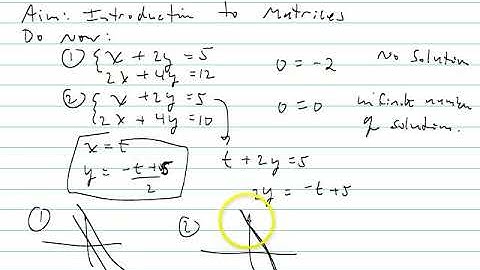 Aim: Introduction to Matrices
Do Now:
① { x + 2y = 5
2x + 4y = 12
0 = -2 No Solution
② { x + 2y = 5
2x + 4y = 10
0 = 0 infinite number of solution.
x = t
y = -t+5/2
t + 2y = 5
2y = -t + 5
① ②